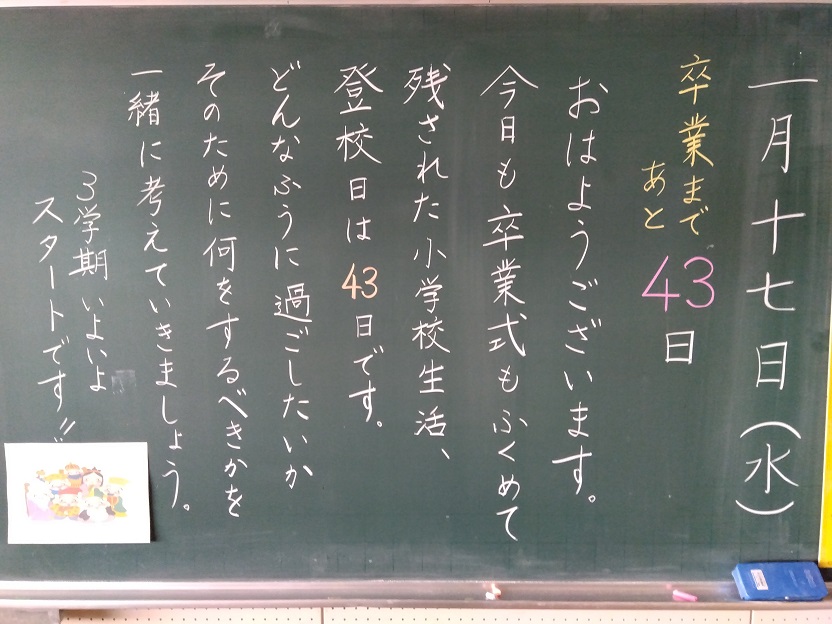 一月十七日(水)
卒業まで
あと
43日
おはようございます。
今日も卒業式もふくめて
残された小学校生活、
登校日は43日です。
どんなふうに過ごしたいか
そのために何をするべきかを
一緒に考えていきましょう。
3学期いよいよ
スタートです!!